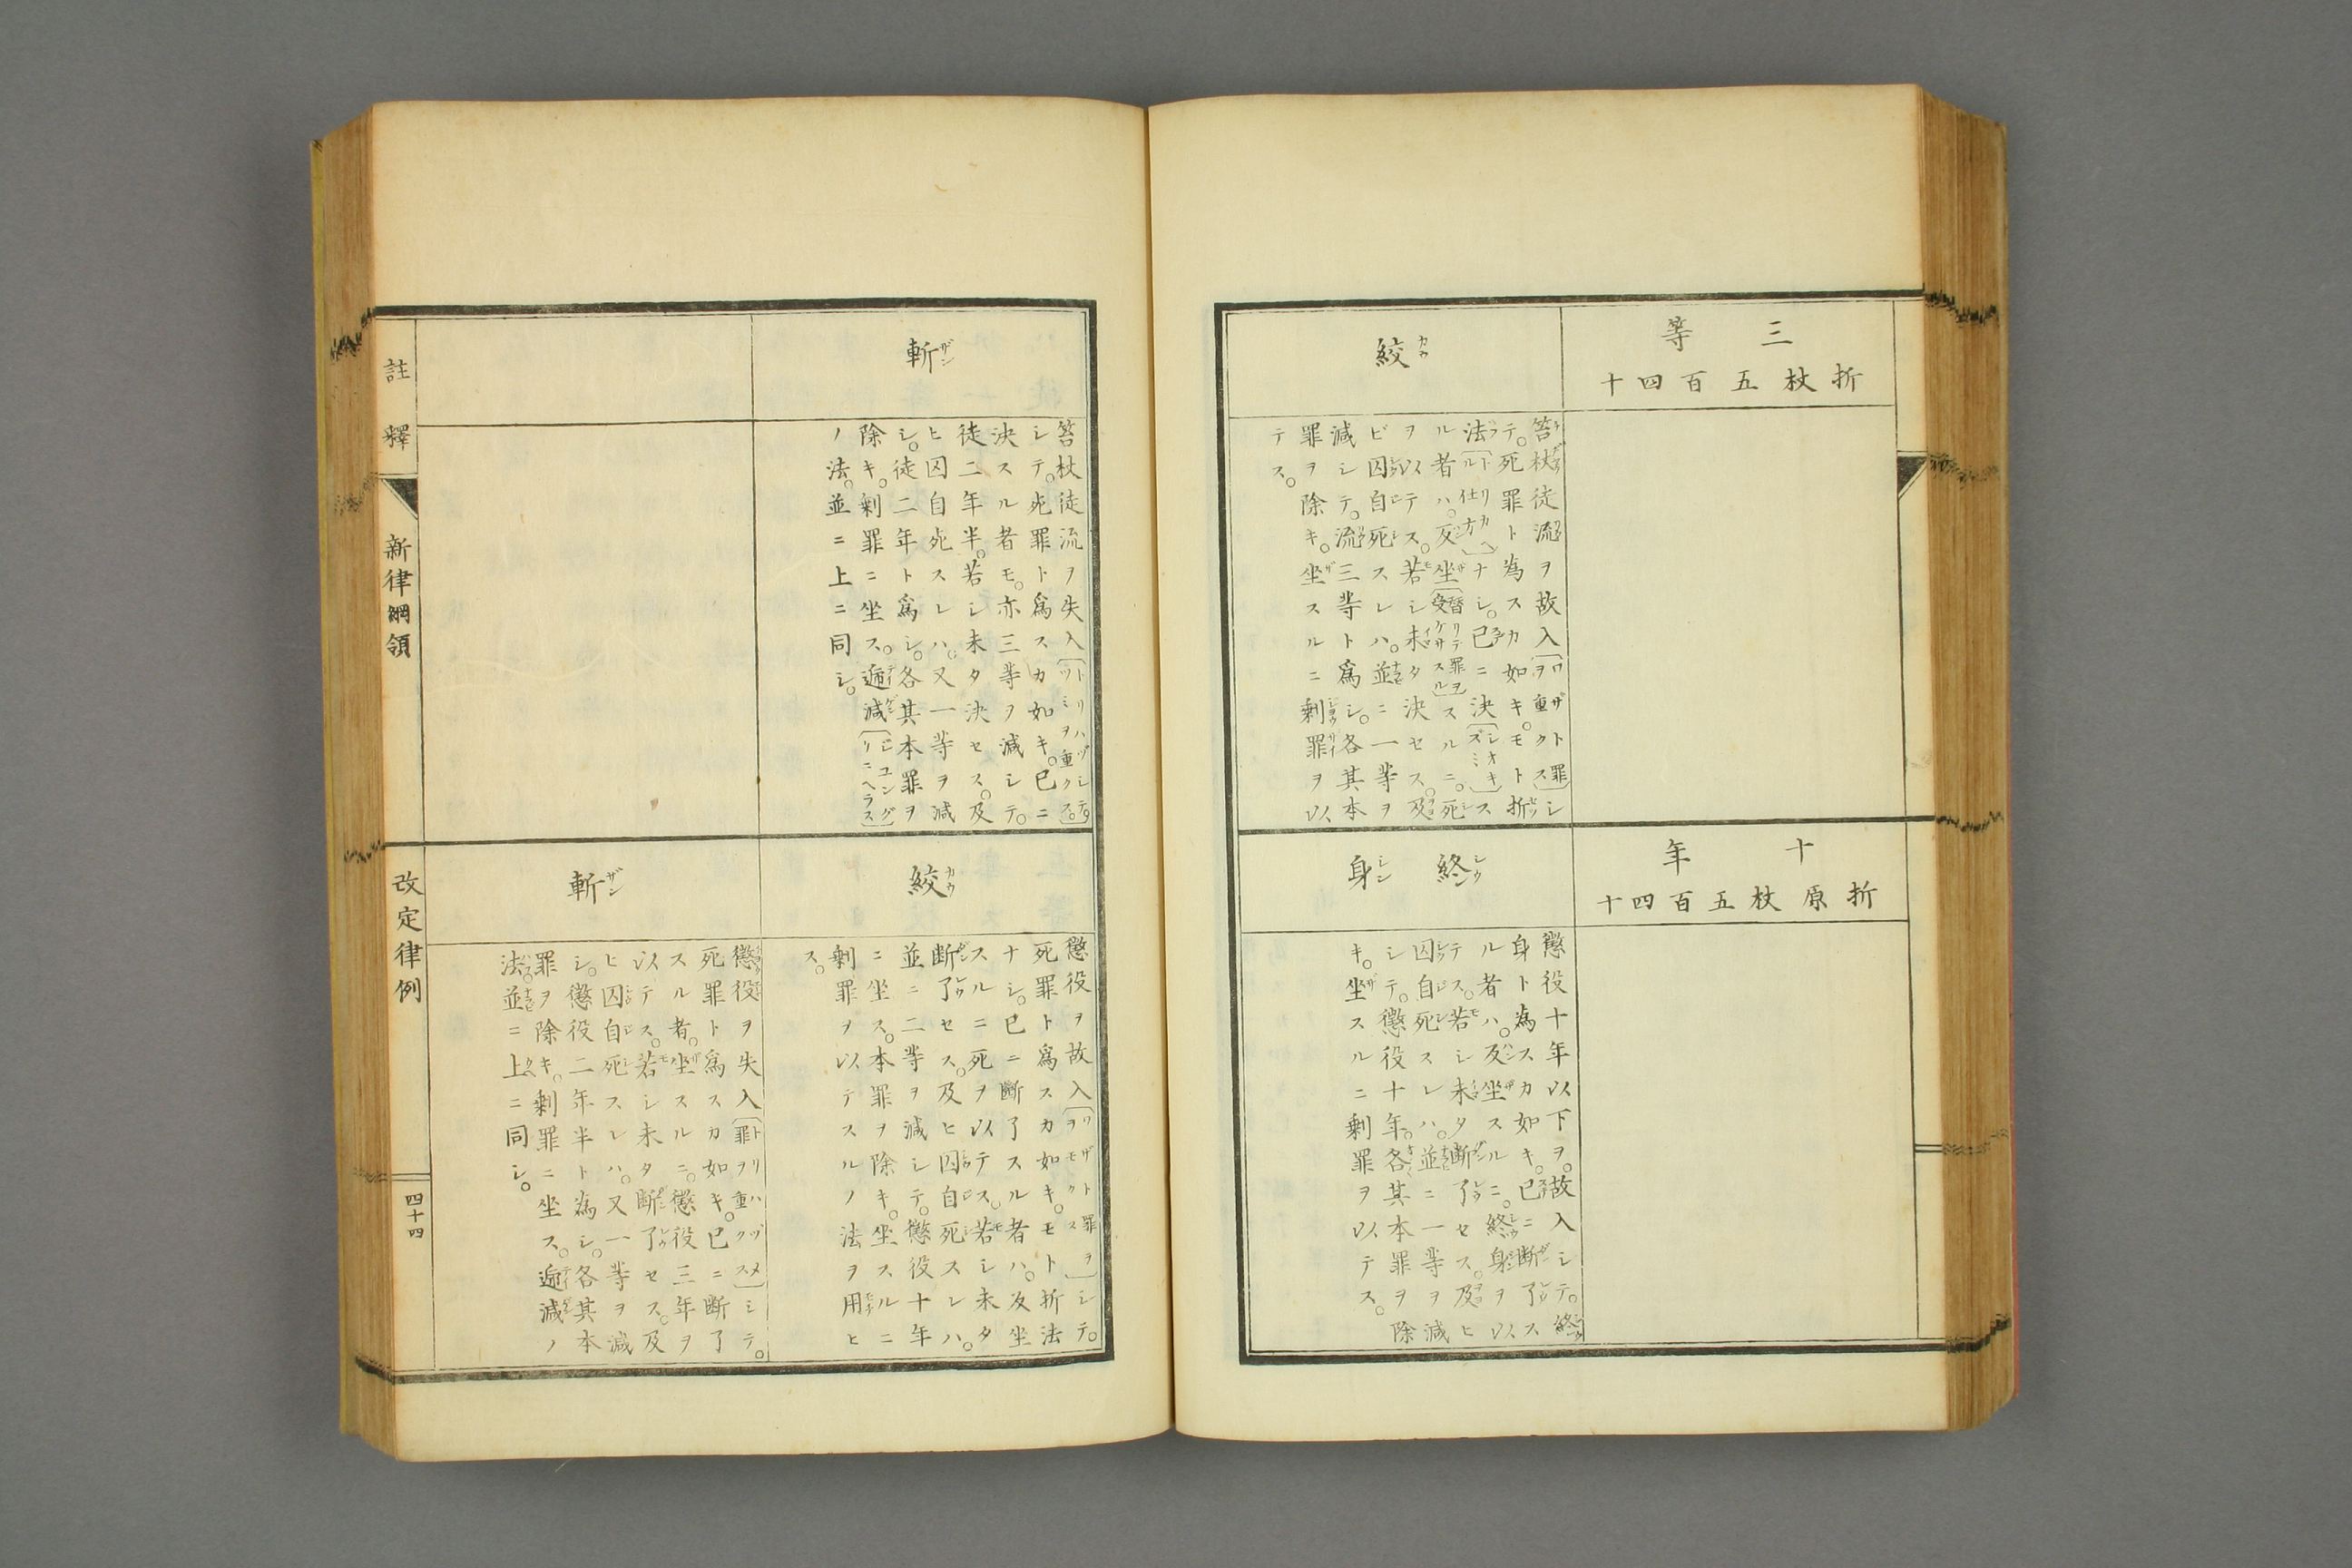 三等
折杖五百四十
絞
笞杖徒流ヲ故入〔ワザト罪ヲ重クス〕シ
テ。死罪ト為スカ如キ。モト折
法〔ルト仕リ方カヘ〕ナシ。已ニ決〔シオキズミ〕ス
ル者ハ。反坐〔替リテ罪ヲ受ケサスル〕スルニ。死
ヲ以テス。若シ未タ決セス。及
ビ囚自死スレハ。並ニ一等ヲ
減シテ。流三等ト爲シ。各其本
罪ヲ除キ。坐スルニ剰罪ヲ以
テス。
十年
折原杖五百四十
終身
懲役十年以下ヲ。故入シテ。終
身ト為スカ如キ。已ニ断了ス
ル者ハ。反坐スルニ。終身ヲ以
テス。若シ未タ断了セス。及ヒ
囚自死スレハ。並ニ一等ヲ減
シテ。懲役十年。各其本罪ヲ除
キ。坐スルニ剰罪ヲ以テス。
斬
笞杖徒流ヲ失入〔トリハヅシテツミヲ重クス。〕
シテ。死罪ト爲スカ如キ。已ニ
決スル者モ。亦三等ヲ減シテ。
徒二年半。若シ未タ決セス。及
ヒ囚自死スレハ。又一等ヲ減
シ。徒二年ト爲シ。各其本罪ヲ
除キ。剰罪ニ坐ス。逓減〔ジユングリニヘラス〕
ノ法。並ニ上ニ同シ。
絞
懲役ヲ故入〔ワザト罪ヲヲモクス〕シテ。
死罪ト爲スカ如キ。モト折法
ナシ。已ニ断了スル者ハ。反坐
スルニ死ヲ以テス。若シ未タ
断了セス。及ヒ囚自死スレハ。
並ニ二等ヲ減シテ。懲役十年
ニ坐ス。本罪ヲ除キ。坐スルニ
剰罪ヲ以テスルノ法ヲ用ヒ
ス。
斬
懲役ヲ失入〔トリハヅメ罪ヲ重クス〕シテ。
死罪ト爲スカ如キ。已ニ断了
スル者。坐スルニ。懲役三年ヲ
以テス。若シ未タ断了セス。及
ヒ囚自死スレハ。又一等ヲ減
シ。懲役二年半ト為シ。各其本
罪ヲ除キ。剰罪ニ坐ス。逓減ノ
法。並ニ上ニ同シ。
註釋
新律綱領
改定律例
四十四